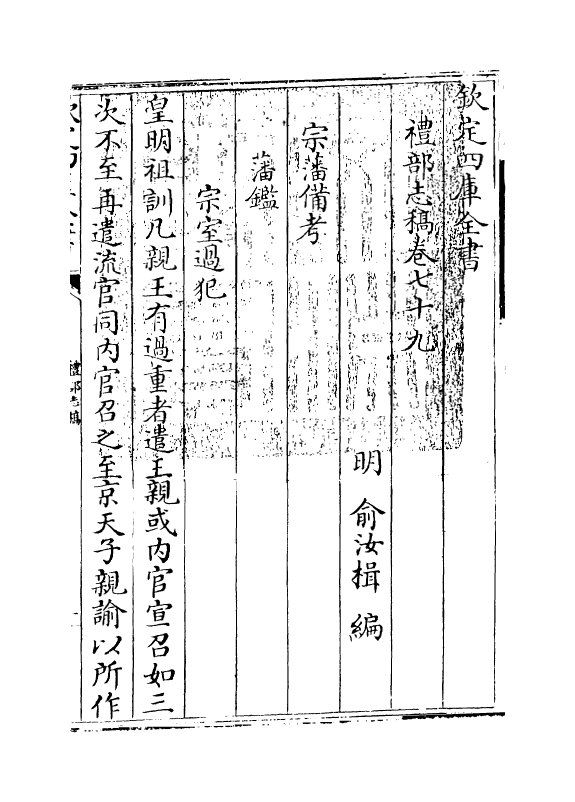 欽定四庫全書
禮部志稿卷七十九
明 俞汝楫 編
宗藩備考
藩鑑
宗室過犯
皇明祖訓凡親王有過重者遣主親或内官宣召如三
次不至再遣流官同内官召之至京天子親諭以所作
禮部志稿